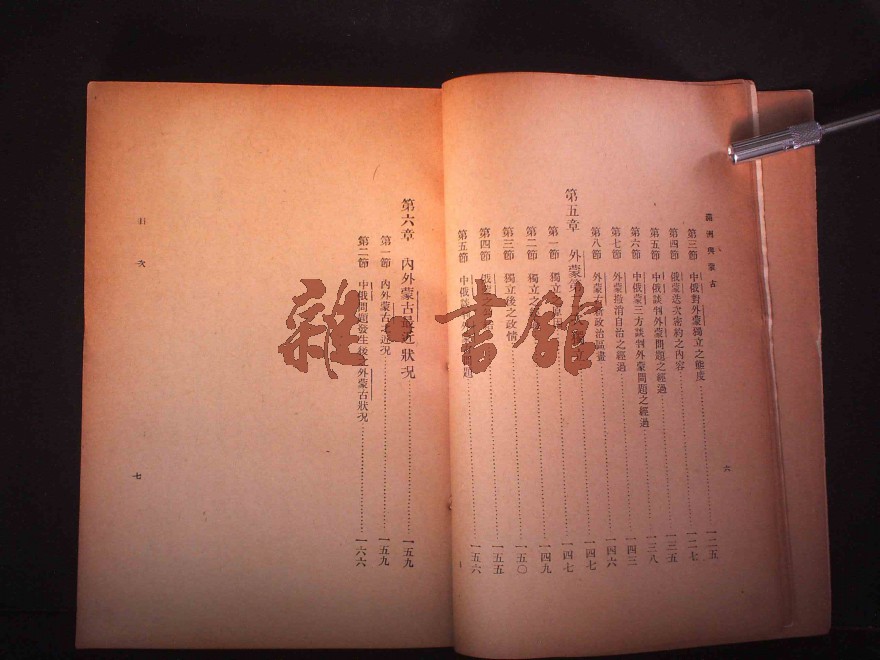 滿洲與蒙古
第三節 中俄對外蒙獨立之態度 一二五
第四節 俄蒙迭次密約之內容 一二七
第五節 中俄談判外蒙問題之經過 一三五
第六節 中俄蒙三方談判外蒙問題之經過 一三八
第七節 外蒙撤消自治之經過 一四三
第八節 外蒙古新政治區畫 一四六
第五章 外蒙 獨立 一四七
第一節 獨立 一四七
第二節 獨立之 一四九
第三節 獨立後之政情 一五〇
第四節 俄 一五五
第五節 中俄 問題 一五六
六
第六章 內外蒙古最近狀況 一五九
第一節 內外蒙古之近況 一五九
第二節 中俄問題發生後之外蒙古狀況 一六六
目次
七
雜·書館